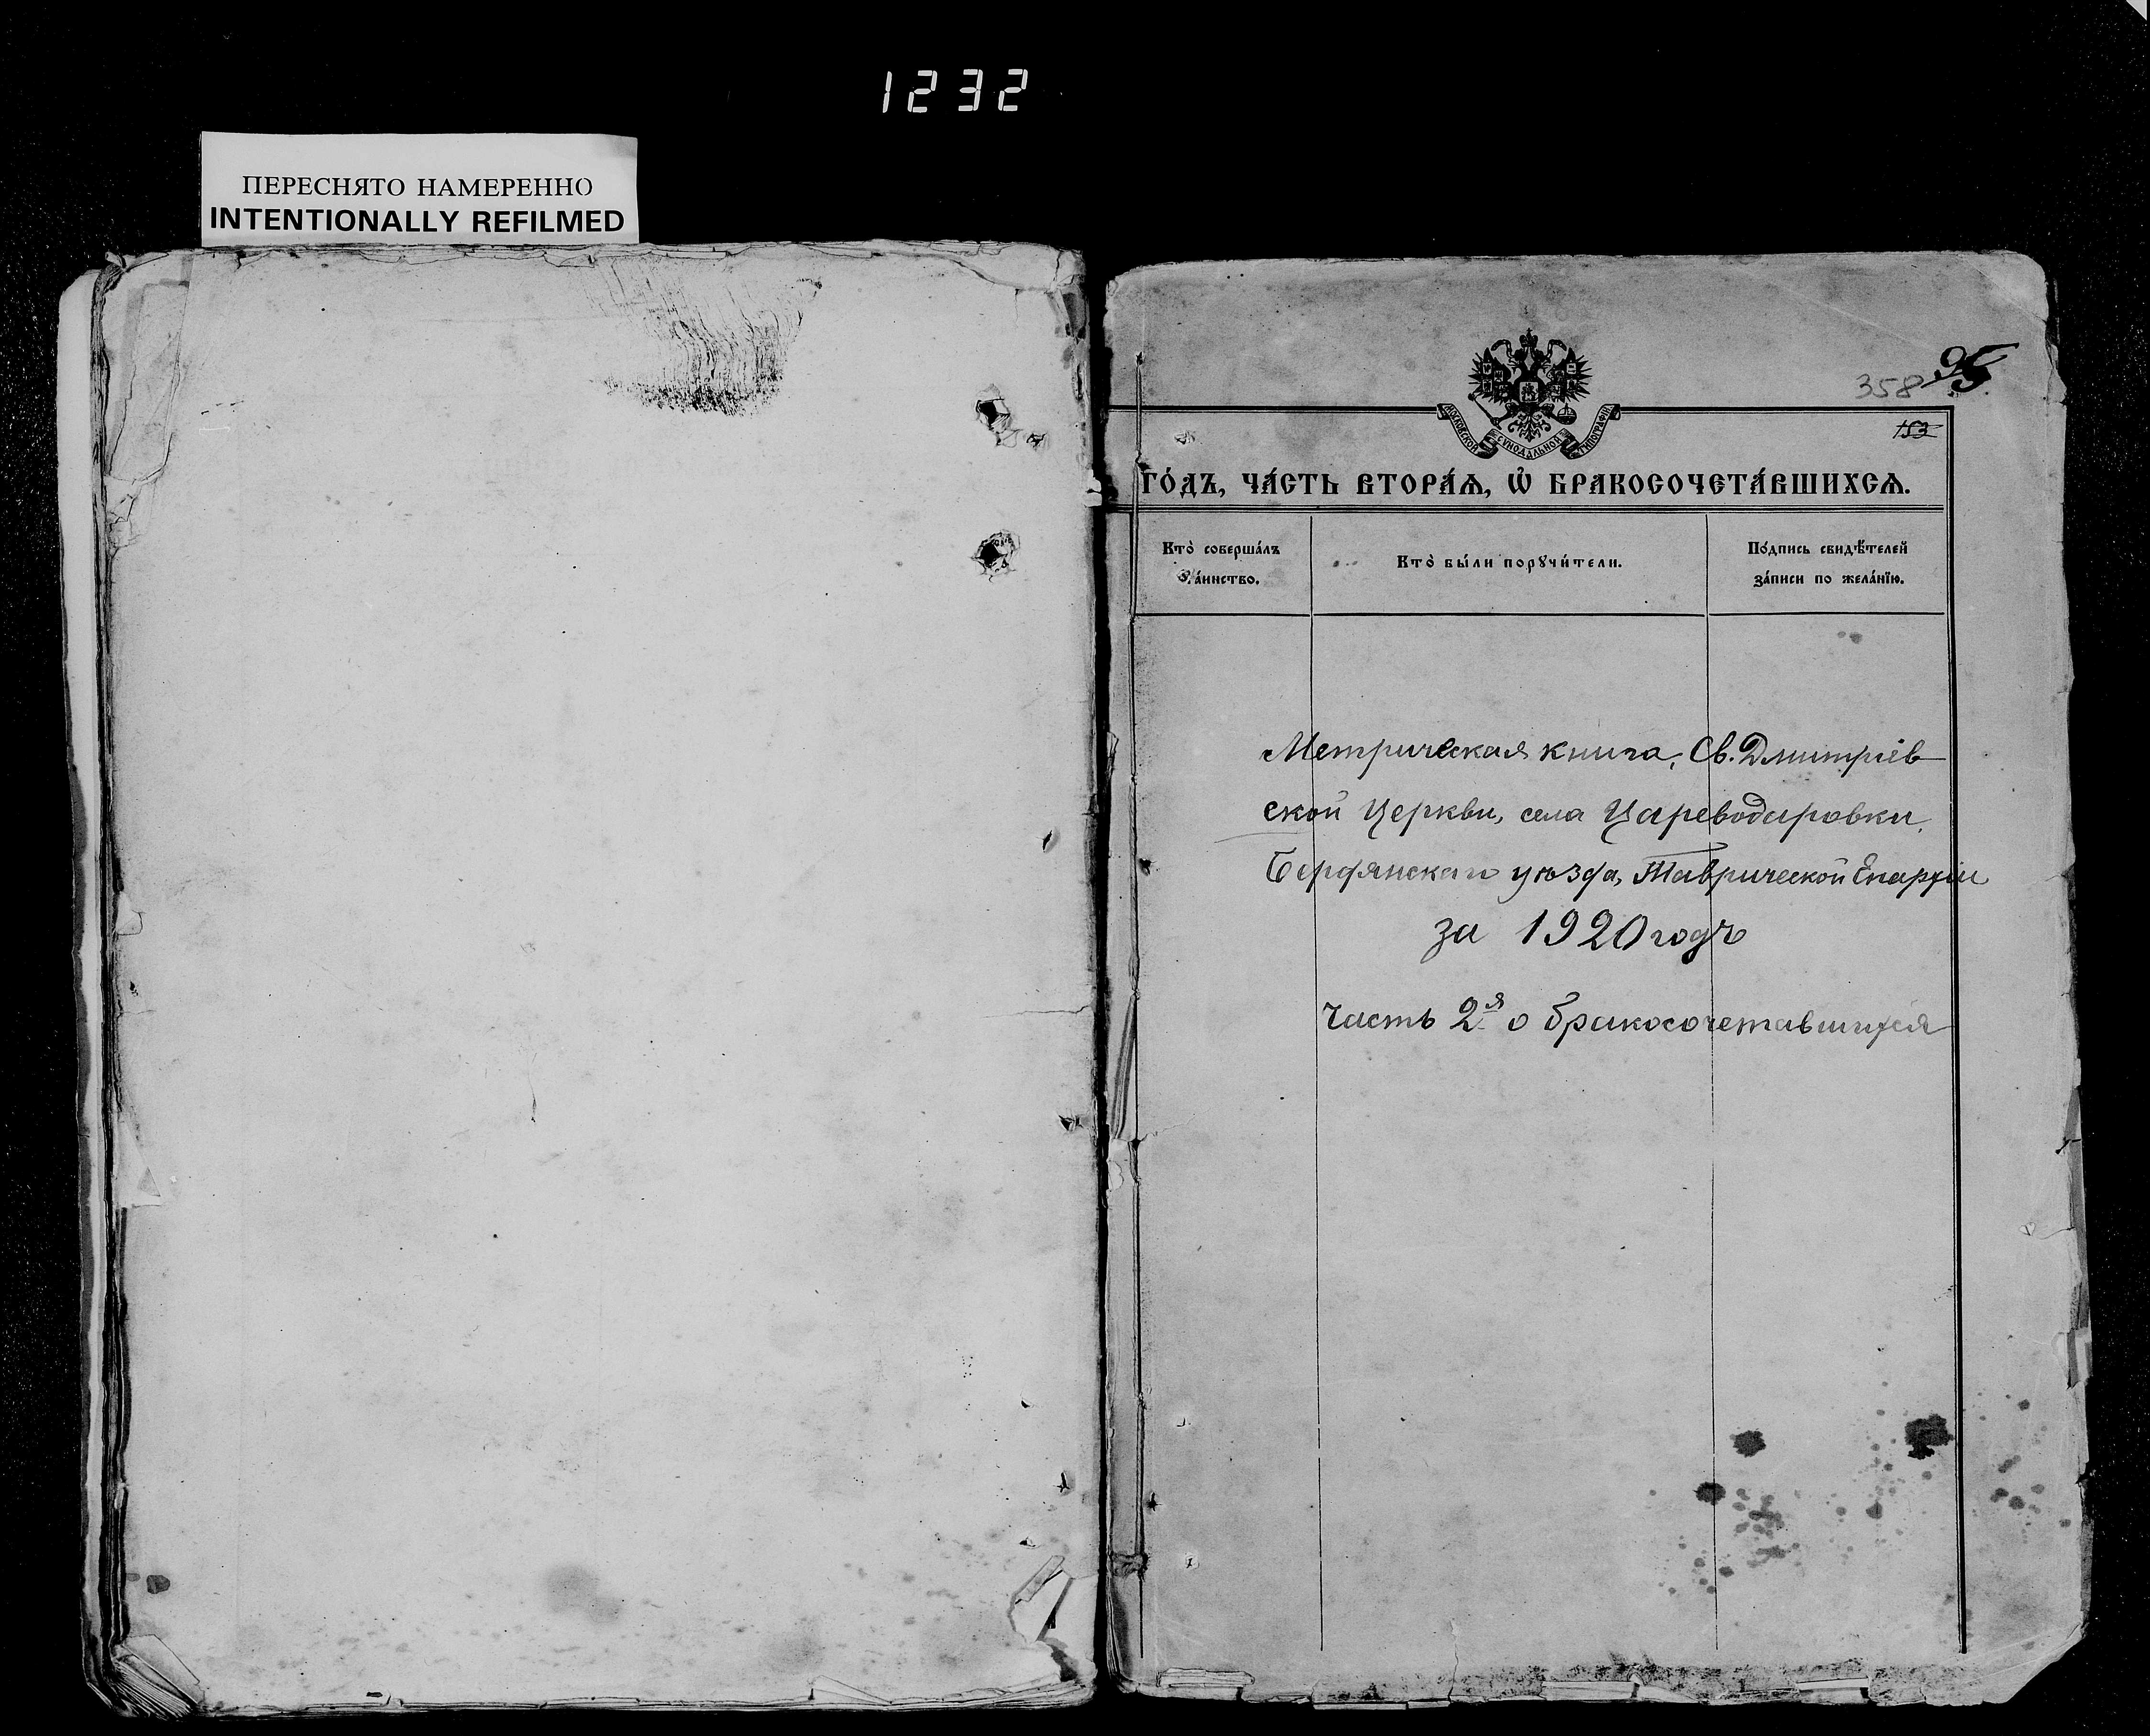 1232
ПЕРЕСНЯТО НАМЕРЕННО
INTENTIONALLY REFILMED
358 95
153
МОСКОВСКОЙ СѴНОДАЛЬНОЙ ТИПОГРАФІИ
ГО́ДЪ, ЧА́СТЬ ВТОРА́Ѧ, Ѽ БРАКОСОЧЕТА́ВШИХСѦ.
Кто̀ соверша́лъ
та́инство.
Кто̀ бы́ли порꙋчи́тели.
По́дпись свидѣ́телей
за́писи по жела́нїю.
Метрическая книга, Св. Дмитрiев
ской Церкви, села Цареводаровки,
Бердянскаго уѣзда, Таврической Епархiи
за 1920 годъ
Часть 2я о бракосочетавшихся